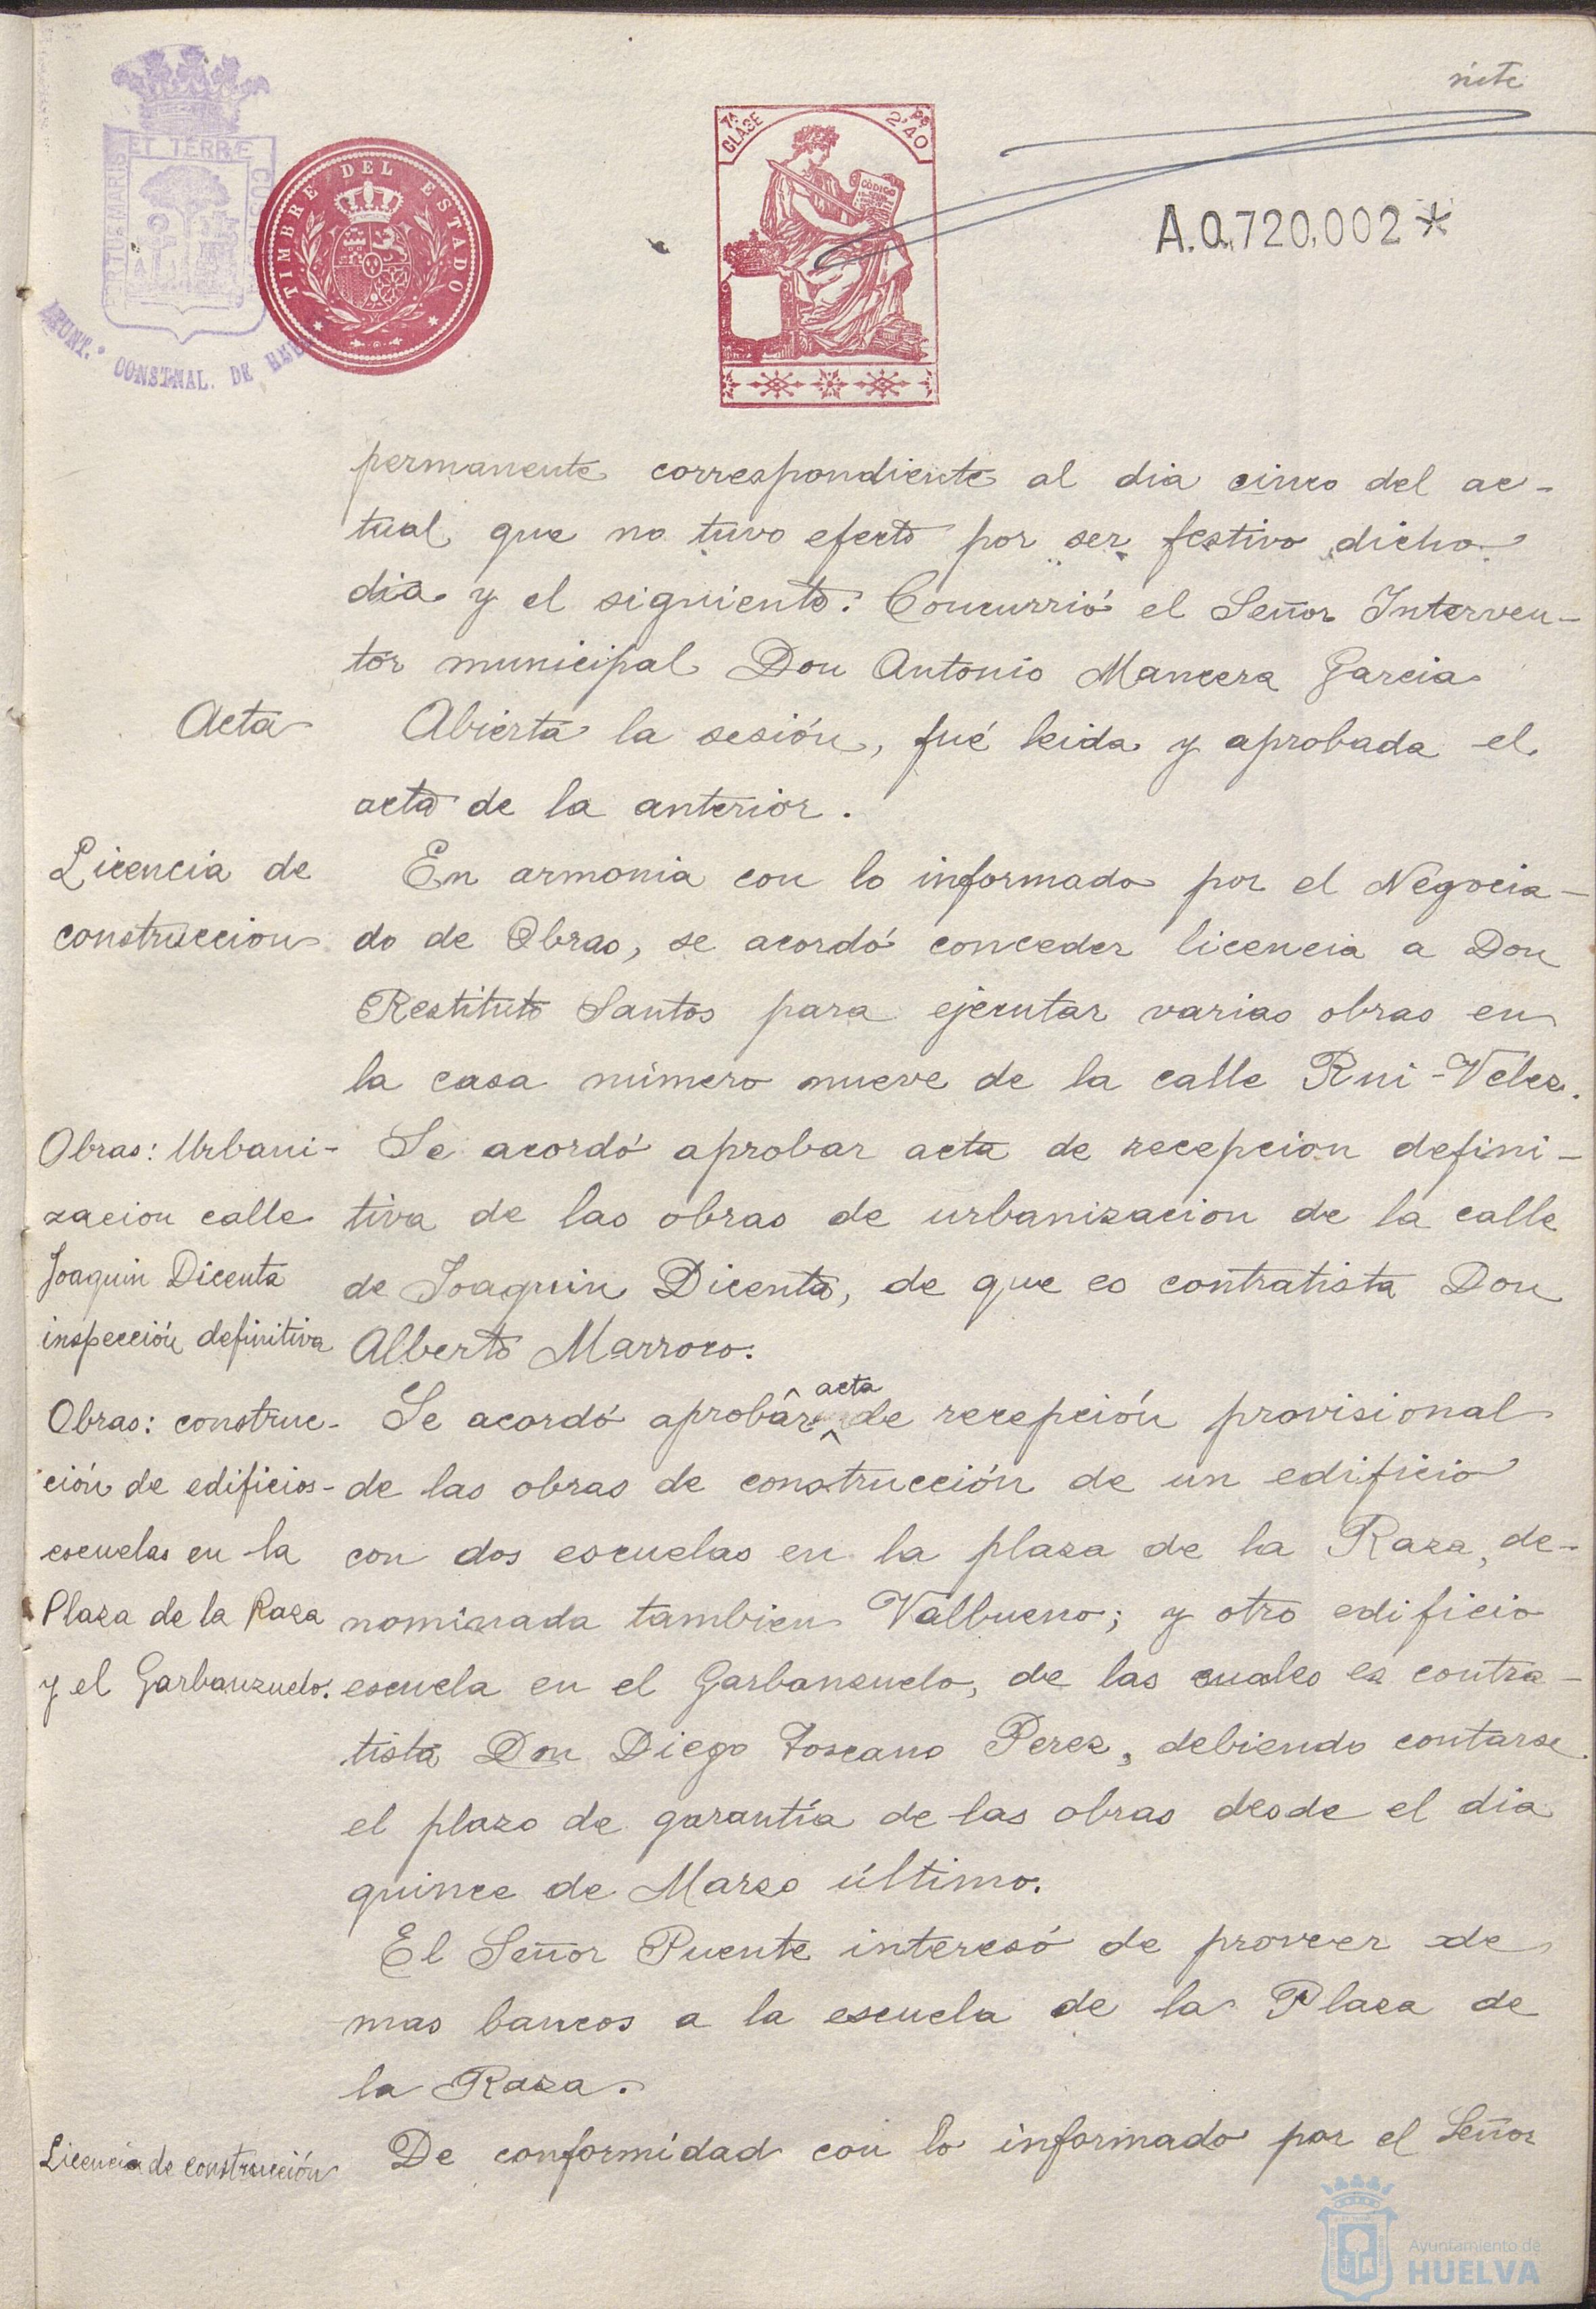 siete
ET TERRÆ
TIMBRE DEL ESTADO
AYUNT.º CONSTNAL. DE
7ª CLASE
Ps 2'40
CÓDIGO
A.0.720.002*
permanente correspondiente al dia cinco del ac-
tual que no tuvo efecto por ser festivo dicho
dia y el siguiente. Concurrió el Señor Interven-
tor municipal Don Antonio Mancera Garcia
Acta
Abierta la sesión, fué leida y aprobada el
acta de la anterior.
Licencia de
construccion
En armonia con lo informado por el Negocia-
do de Obras, se acordó conceder licencia a Don
Restituto Santos para ejecutar varias obras en
la casa número nueve de la calle Rui-Velez.
Obras: Urbani-
zacion calle
Joaquin Dicenta
inspección definitiva
Se acordó aprobar acta de recepcion defini-
tiva de las obras de urbanizacion de la calle
de Joaquin Dicenta, de que es contratista Don
Alberto Marroco.
Obras: construc-
ción de edificios-
escuelas en la
Plaza de la Raza
y el Garbanzuelo.
Se acordó aprobar acta de recepción provisional
de las obras de construcción de un edificio
con dos escuelas en la plaza de la Raza, de-
nominada tambien Valbueno; y otro edificio
escuela en el Garbanzuelo, de las cuales es contra-
tista Don Diego Toscano Perez, debiendo contarse
el plazo de garantía de las obras desde el dia
quince de Marzo último.
El Señor Puente interesó de proveer de
mas bancos a la escuela de la Plaza de
la Raza.
Licencia de construcción
De conformidad con lo informado por el Señor
Ayuntamiento de
HUELVA